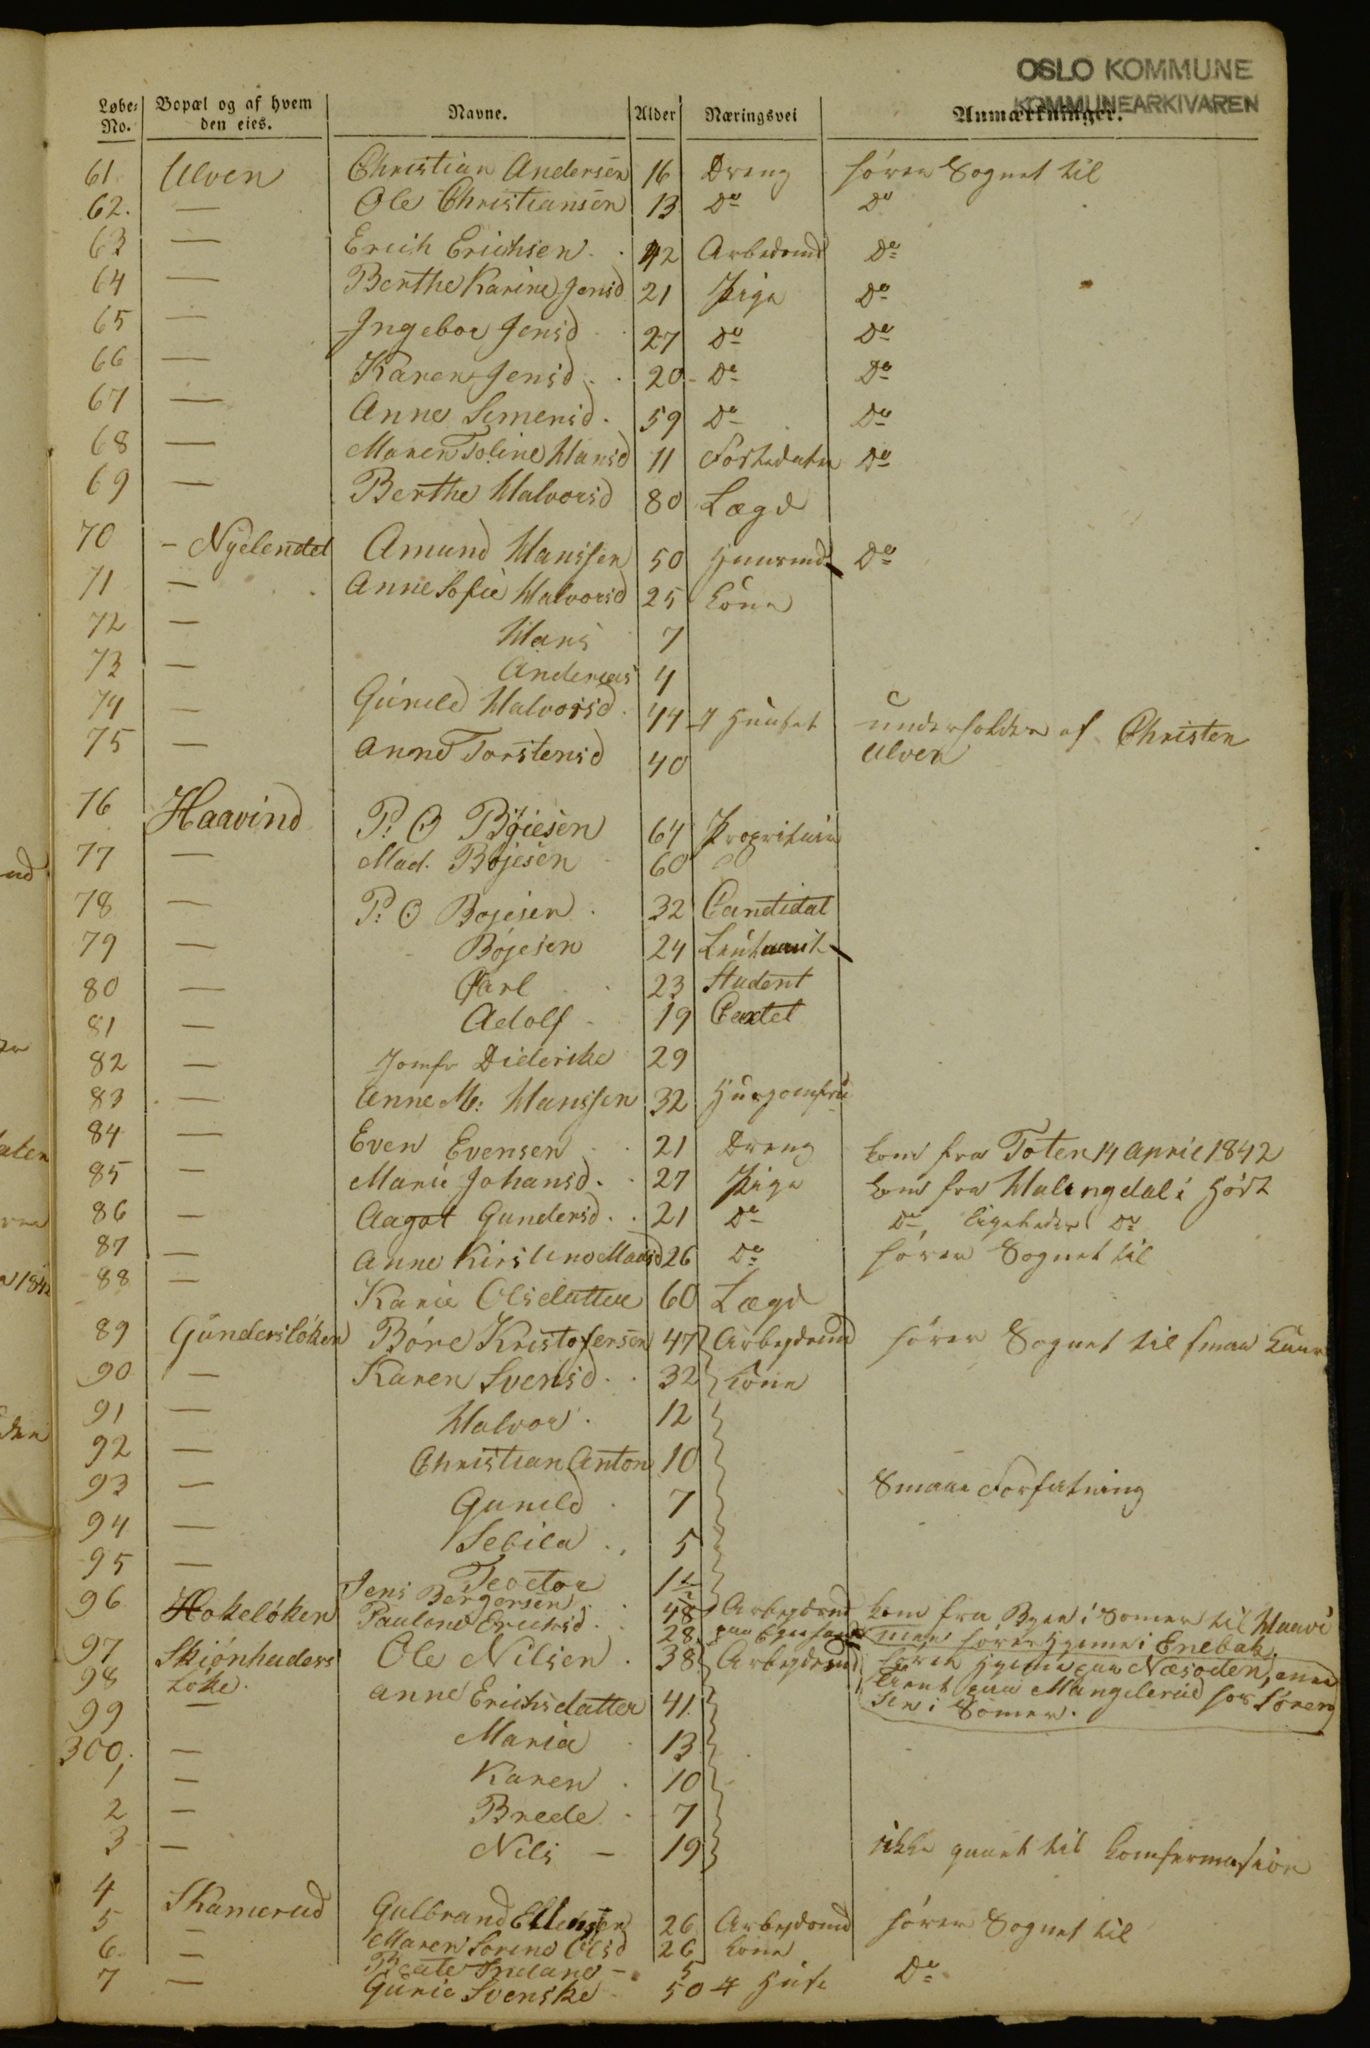 OSLO KOMMUNE
KOMMUNEARKIVAREN
Løbe- No. Bopæl og af hvem den eies. Navne. Alder Næringsvei Anmærkninger.
61 Ulven Christian Andersen 16 Dreng hører Sognet til
62. — Ole Christiansen 13 Do Do
63 — Erich Erichsen 42 Arbedsmd Do
64 — Berthe Karine Jensd 21 Pige Do
65 — Ingebor Jensd 27 Do Do
66 — Karen Jensd 20 Do Do
67 — Anne Simensd 59 Do Do
68 — Maren Toline Hansd 11 Fosterdater Do
69 — Berthe Halvorsd 80 Lægd
70 — Nyelendet Amund Hanssen 50 Huusmd Do
71 — Anne Sofie Halvorsd 25 Kone
72 — Hans 7
73 — Andereas 4
74 — Gunild Halvorsd 44 I Huuset underholder af Christen
75 — Anne Torstensd 40 Ulven
76 Haavind P. O Bøiesen 64 Propritair
77 — Mad. Bøjesen 60
78 — P. O Bojesen 32 Candidat
79 — Bøjesen 24 Leutnant
80 — Carl 23 Student
81 — Adolf 19 Cadet
82 — Jomfr Diderike 29
83 — Anne M. Hanssen 32 Husjomfru
84 — Even Evensen 21 Dreng kom fra Toten 14 April 1842
85 — Marie Johansd. 27 Pige kom fra Halingdal i Høst
86 — Aagot Gundersd. 21 Do Do ligeledes Do
87 — Anne Kirstine Madsd 26 Do hører Sognet til
88 — Karie Olsdatter 60 Lægd
89 Gundersløken Børe Kristofersen 47 Arbejdsmd hører Sognet til smaa Kaar
90 — Karen Svensd 32 Kone
91 — Halvor 12
92 — Christian Anton 10
93 — Gunild 7 Smaae Forfatning
94 — Sebila 5
95 — Teodor 1 1/2
96 Hokeløken Jens Bergersen 48 Arbejdsmd kom fra Byen i Somer til Haavi
Pauline Erichsd 28 men hører Hjeme i Enebak
97 Skjønhaders Ole Nilsen 38 Arbejdsmd hører Hjeme paa Næsoden, men
98 Løke. Anne Erichsdatter 41 tient paa Manglerud hos Søren
99 — Maria 13 sen i Somer.
300. — Karen 10
1 — Brede 7
2 — Nils — 19 ikke gaaet til Komfermasion
3 —
4 Skamerud Gulbrand Ellingsen 26 Arbejdsmd hører Sognet til
5 — Maren Sorine Olsd 26 Kone
6 — Beate 5
7 — Gurie Svenske 50 I Huse Do